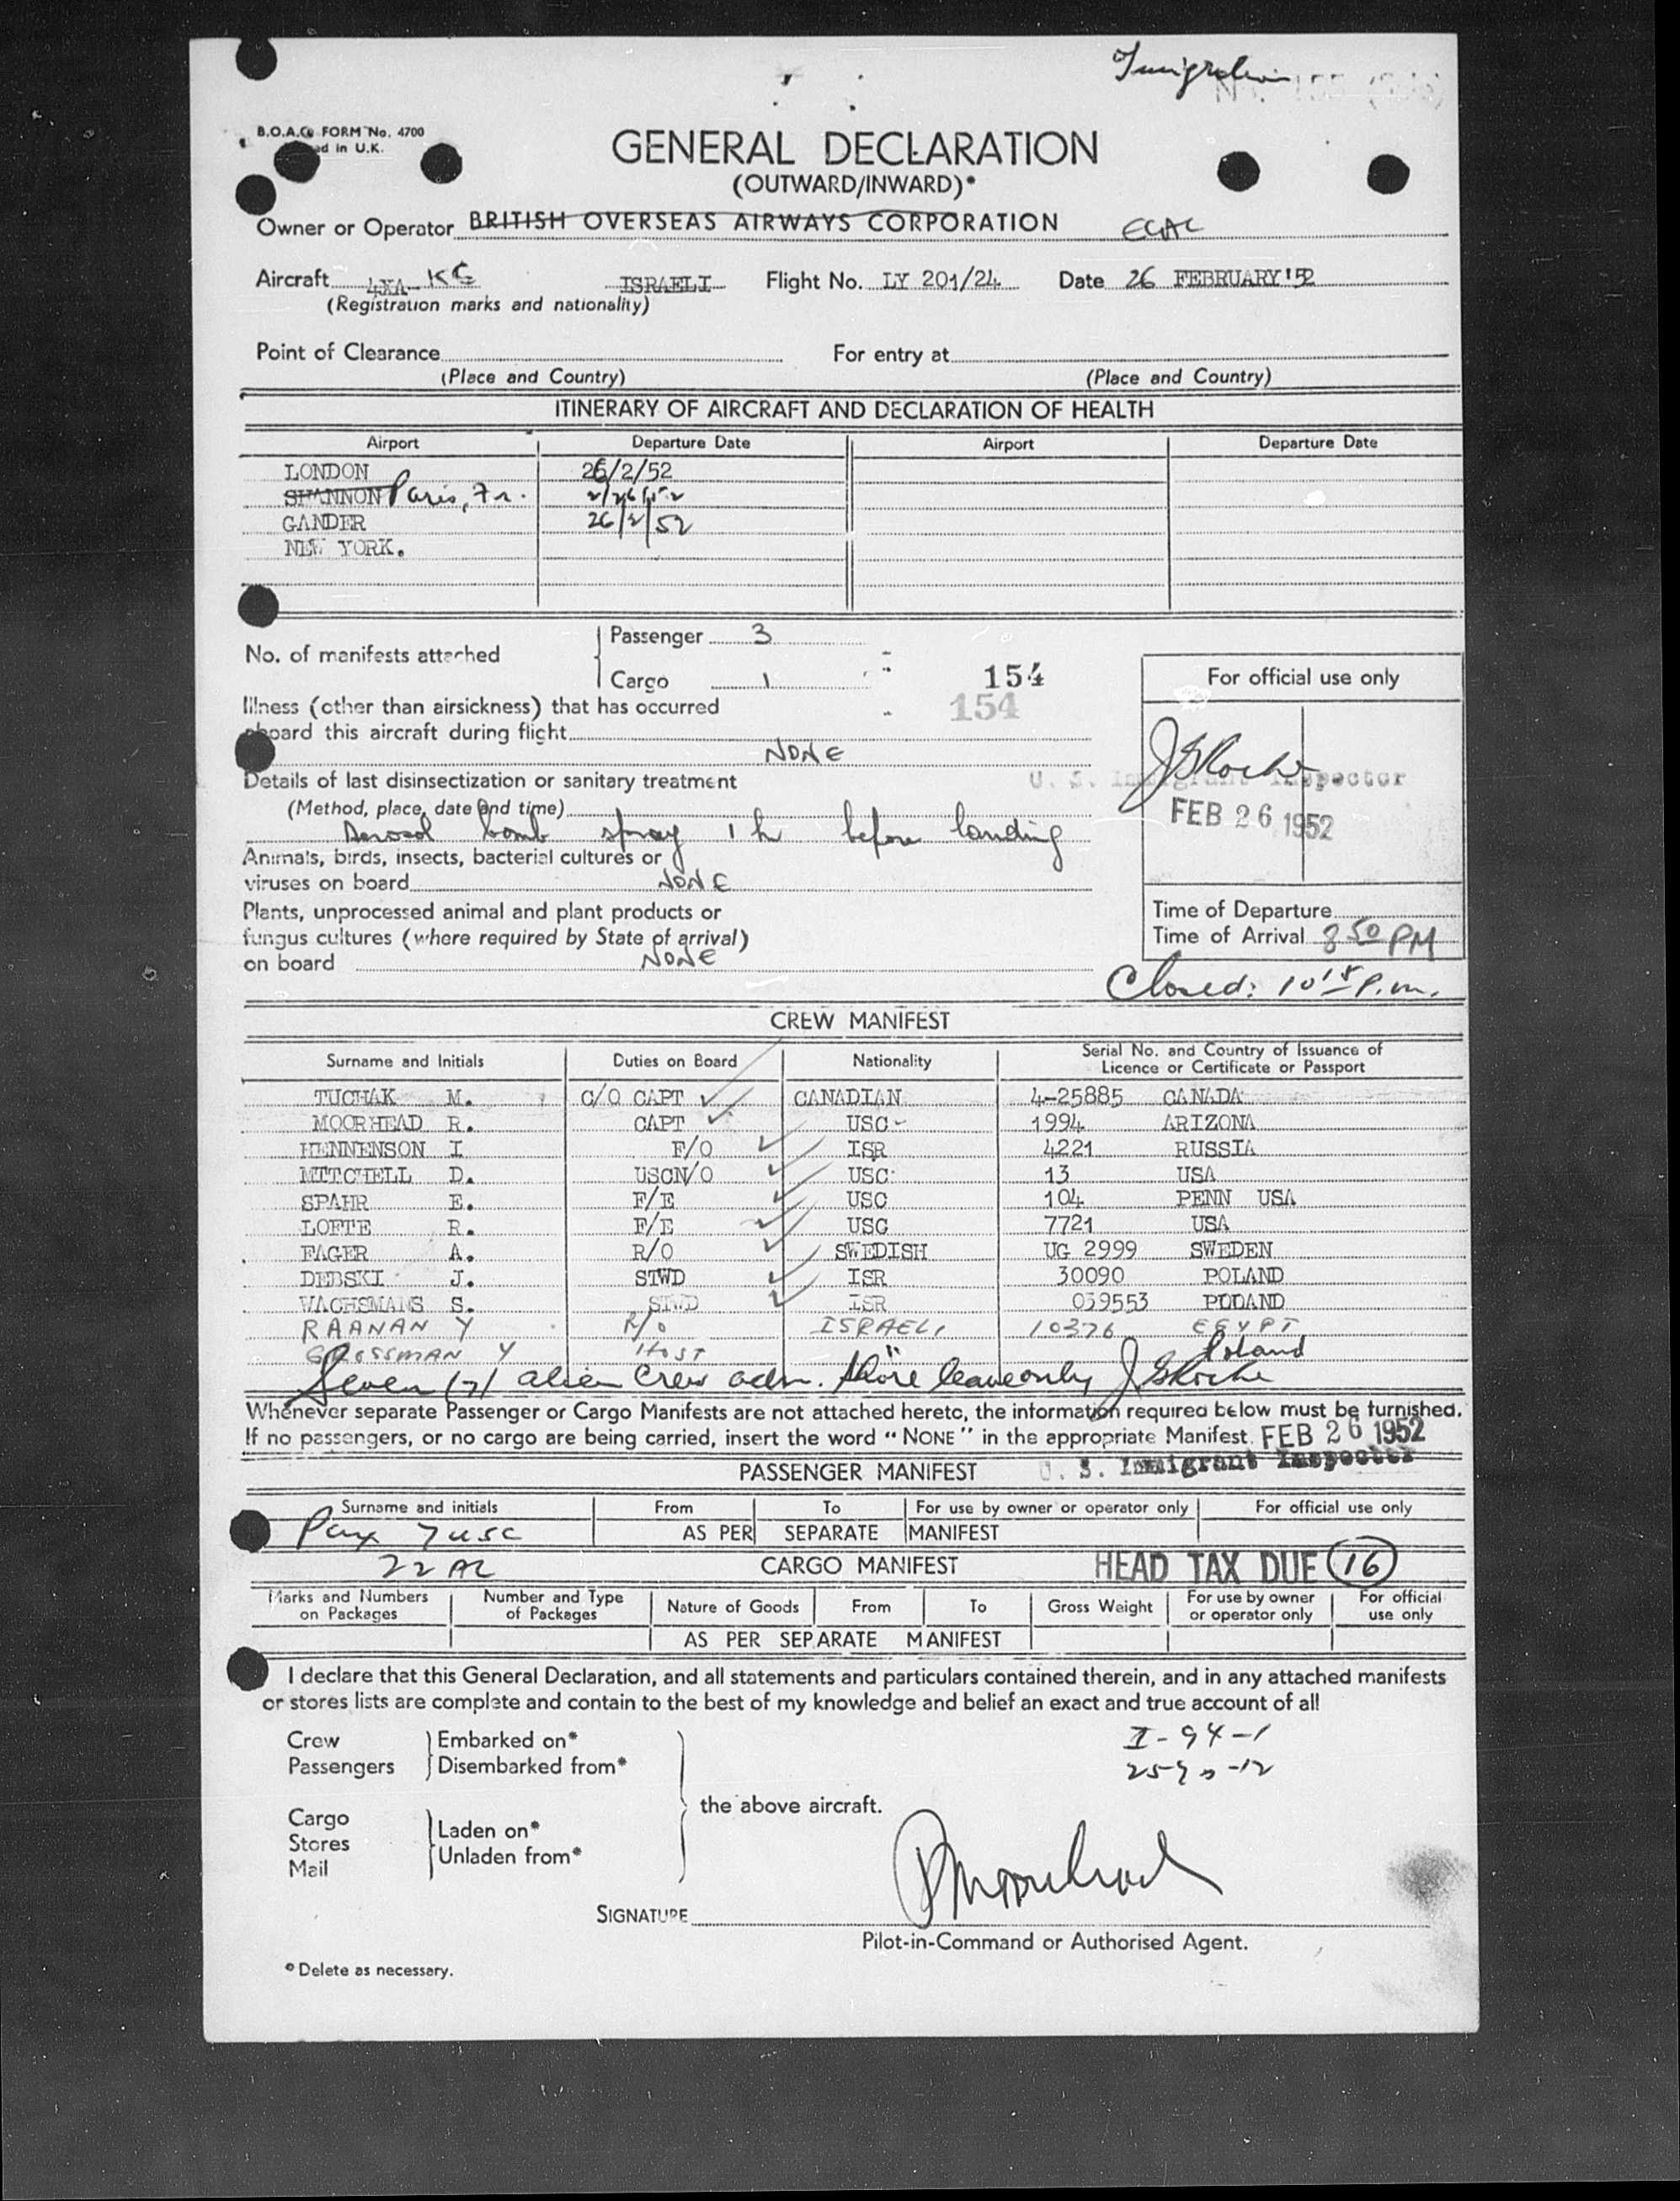 Immigration
B.O.A.C. FORM No. 4700
ed in U.K.
GENERAL DECLARATION
(OUTWARD/INWARD)*
Owner or Operator BRITISH OVERSEAS AIRWAYS CORPORATION
Aircraft 4XA- ISRAELI Flight No. LY 201/24 Date 26 FEBRUARY '52
(Registration marks and nationality)
Point of Clearance For entry at
(Place and Country) (Place and Country)
ITINERARY OF AIRCRAFT AND DECLARATION OF HEALTH
Airport Departure Date Airport Departure Date
LONDON 26/2/52
SHANNON Paris, Fr. 2/26/52
GANDER 26/2/52
NEW YORK.
No. of manifests attached
Passenger 3
Cargo 1
154
154
For official use only
Illness (other than airsickness) that has occurred
aboard this aircraft during flight NONE
Details of last disinsectization or sanitary treatment
(Method, place, date and time)
Aerosol bomb spray 1 hr before landing
U. S. Immigrant Inspector
FEB 26 1952
Animals, birds, insects, bacterial cultures or
viruses on board NONE
Plants, unprocessed animal and plant products or
fungus cultures (where required by State of arrival)
on board NONE
Time of Departure
Time of Arrival 8 50 PM
Closed: 10 15 P.m.
CREW MANIFEST
Surname and Initials Duties on Board Nationality Serial No. and Country of Issuance of Licence or Certificate or Passport
TUCHAK M. C/O CAPT CANADIAN 4-25885 CANADA
MOORHEAD R. CAPT USC 1994 ARIZONA
HENNENSON I F/O ISR 4221 RUSSIA
MITCHELL D. USCN/O USC 13 USA
SPAHR E. F/E USC 104 PENN USA
LOFTE R. F/E USC 7721 USA
FAGER A. R/O SWEDISH UG 2999 SWEDEN
DEBSKI J. STWD ISR 30090 POLAND
WACHSMANS S. STWD ISR 039553 PODAND
RAANAN Y R/O ISRAELI 10376 EGYPT
GROSSMAN Y HOST " Poland
Seven (7) alien Crew adm. shore leave only
Whenever separate Passenger or Cargo Manifests are not attached hereto, the information required below must be furnished.
If no passengers, or no cargo are being carried, insert the word "NONE" in the appropriate Manifest.
FEB 26 1952
U. S. Immigrant Inspector
PASSENGER MANIFEST
Surname and initials From To For use by owner or operator only For official use only
Pax 7 USC AS PER SEPARATE MANIFEST
22 AL
CARGO MANIFEST
HEAD TAX DUE 16
Marks and Numbers on Packages Number and Type of Packages Nature of Goods From To Gross Weight For use by owner or operator only For official use only
AS PER SEPARATE MANIFEST
I declare that this General Declaration, and all statements and particulars contained therein, and in any attached manifests
or stores lists are complete and contain to the best of my knowledge and belief an exact and true account of all
Crew Embarked on*
Passengers Disembarked from*
I-94-1
the above aircraft.
Cargo
Stores
Mail
Laden on*
Unladen from*
SIGNATURE
Pilot-in-Command or Authorised Agent.
* Delete as necessary.